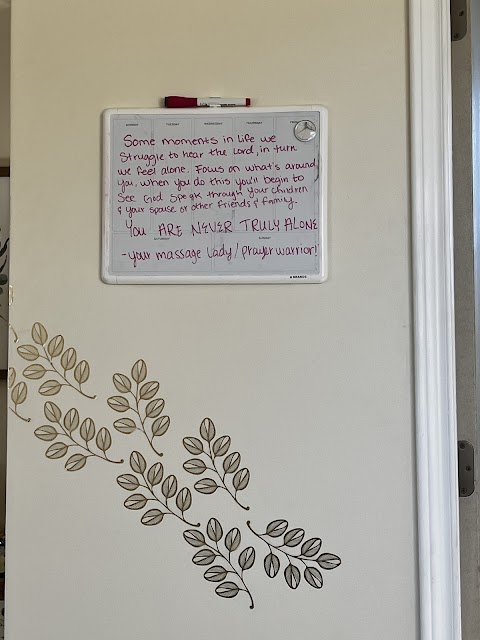 MONDAY TUESDAY WEDNESDAY THURSDAY
Some moments in life we
Struggle to hear the Lord, in turn
we feel alone. Focus on what's around
you, when you do this you'll begin to
See God Speak through your children
& your spouse or other friends & family.
YOU ARE NEVER TRULY ALONE
SATURDAY SUNDAY
-your massage lady/prayer warrior!